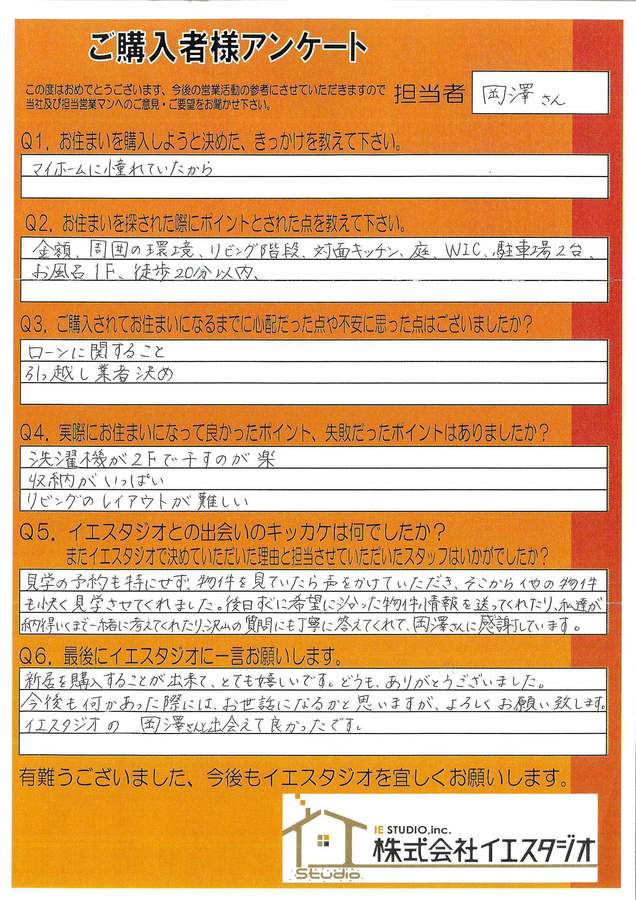 ご購入者様アンケート
この度はおめでとうございます、今後の営業活動の参考にさせていただきますので
当社及び担当営業マンへのご意見・ご要望をお聞かせ下さい。
担当者 岡澤さん
Q1．お住まいを購入しようと決めた、きっかけを教えて下さい。
マイホームに憧れていたから
Q2．お住まいを探された際にポイントとされた点を教えて下さい。
金額、周囲の環境、リビング階段、対面キッチン、庭、WIC、駐車場2台、
お風呂1F、徒歩20分以内、
Q3．ご購入されてお住まいになるまでに心配だった点や不安に思った点はございましたか？
ローンに関すること
引っ越し業者決め
Q4．実際にお住まいになって良かったポイント、失敗だったポイントはありましたか？
洗濯機が2Fで干すのが楽
収納がいっぱい
リビングのレイアウトが難しい
Q5．イエスタジオとの出会いのキッカケは何でしたか？
またイエスタジオで決めていただいた理由と担当させていただいたスタッフはいかがでしたか？
見学の予約も特にせず、物件を見ていたら声をかけていただき、そこから他の物件
も快く見学させてくれました。後日すぐに希望に沿った物件情報を送ってくれたり、私達が
納得いくまで一緒に考えてくれたり、沢山の質問にも丁寧に答えてくれて、岡澤さんに感謝しています。
Q6．最後にイエスタジオに一言お願いします。
新居を購入することが出来て、とても嬉しいです。どうも、ありがとうございました。
今後も何かあった際には、お世話になるかと思いますが、よろしくお願い致します。
イエスタジオの 岡澤さんと出会えて良かったです。
有難うございました、今後もイエスタジオを宜しくお願いします。
IE STUDIO,inc.
株式会社イエスタジオ
Studio